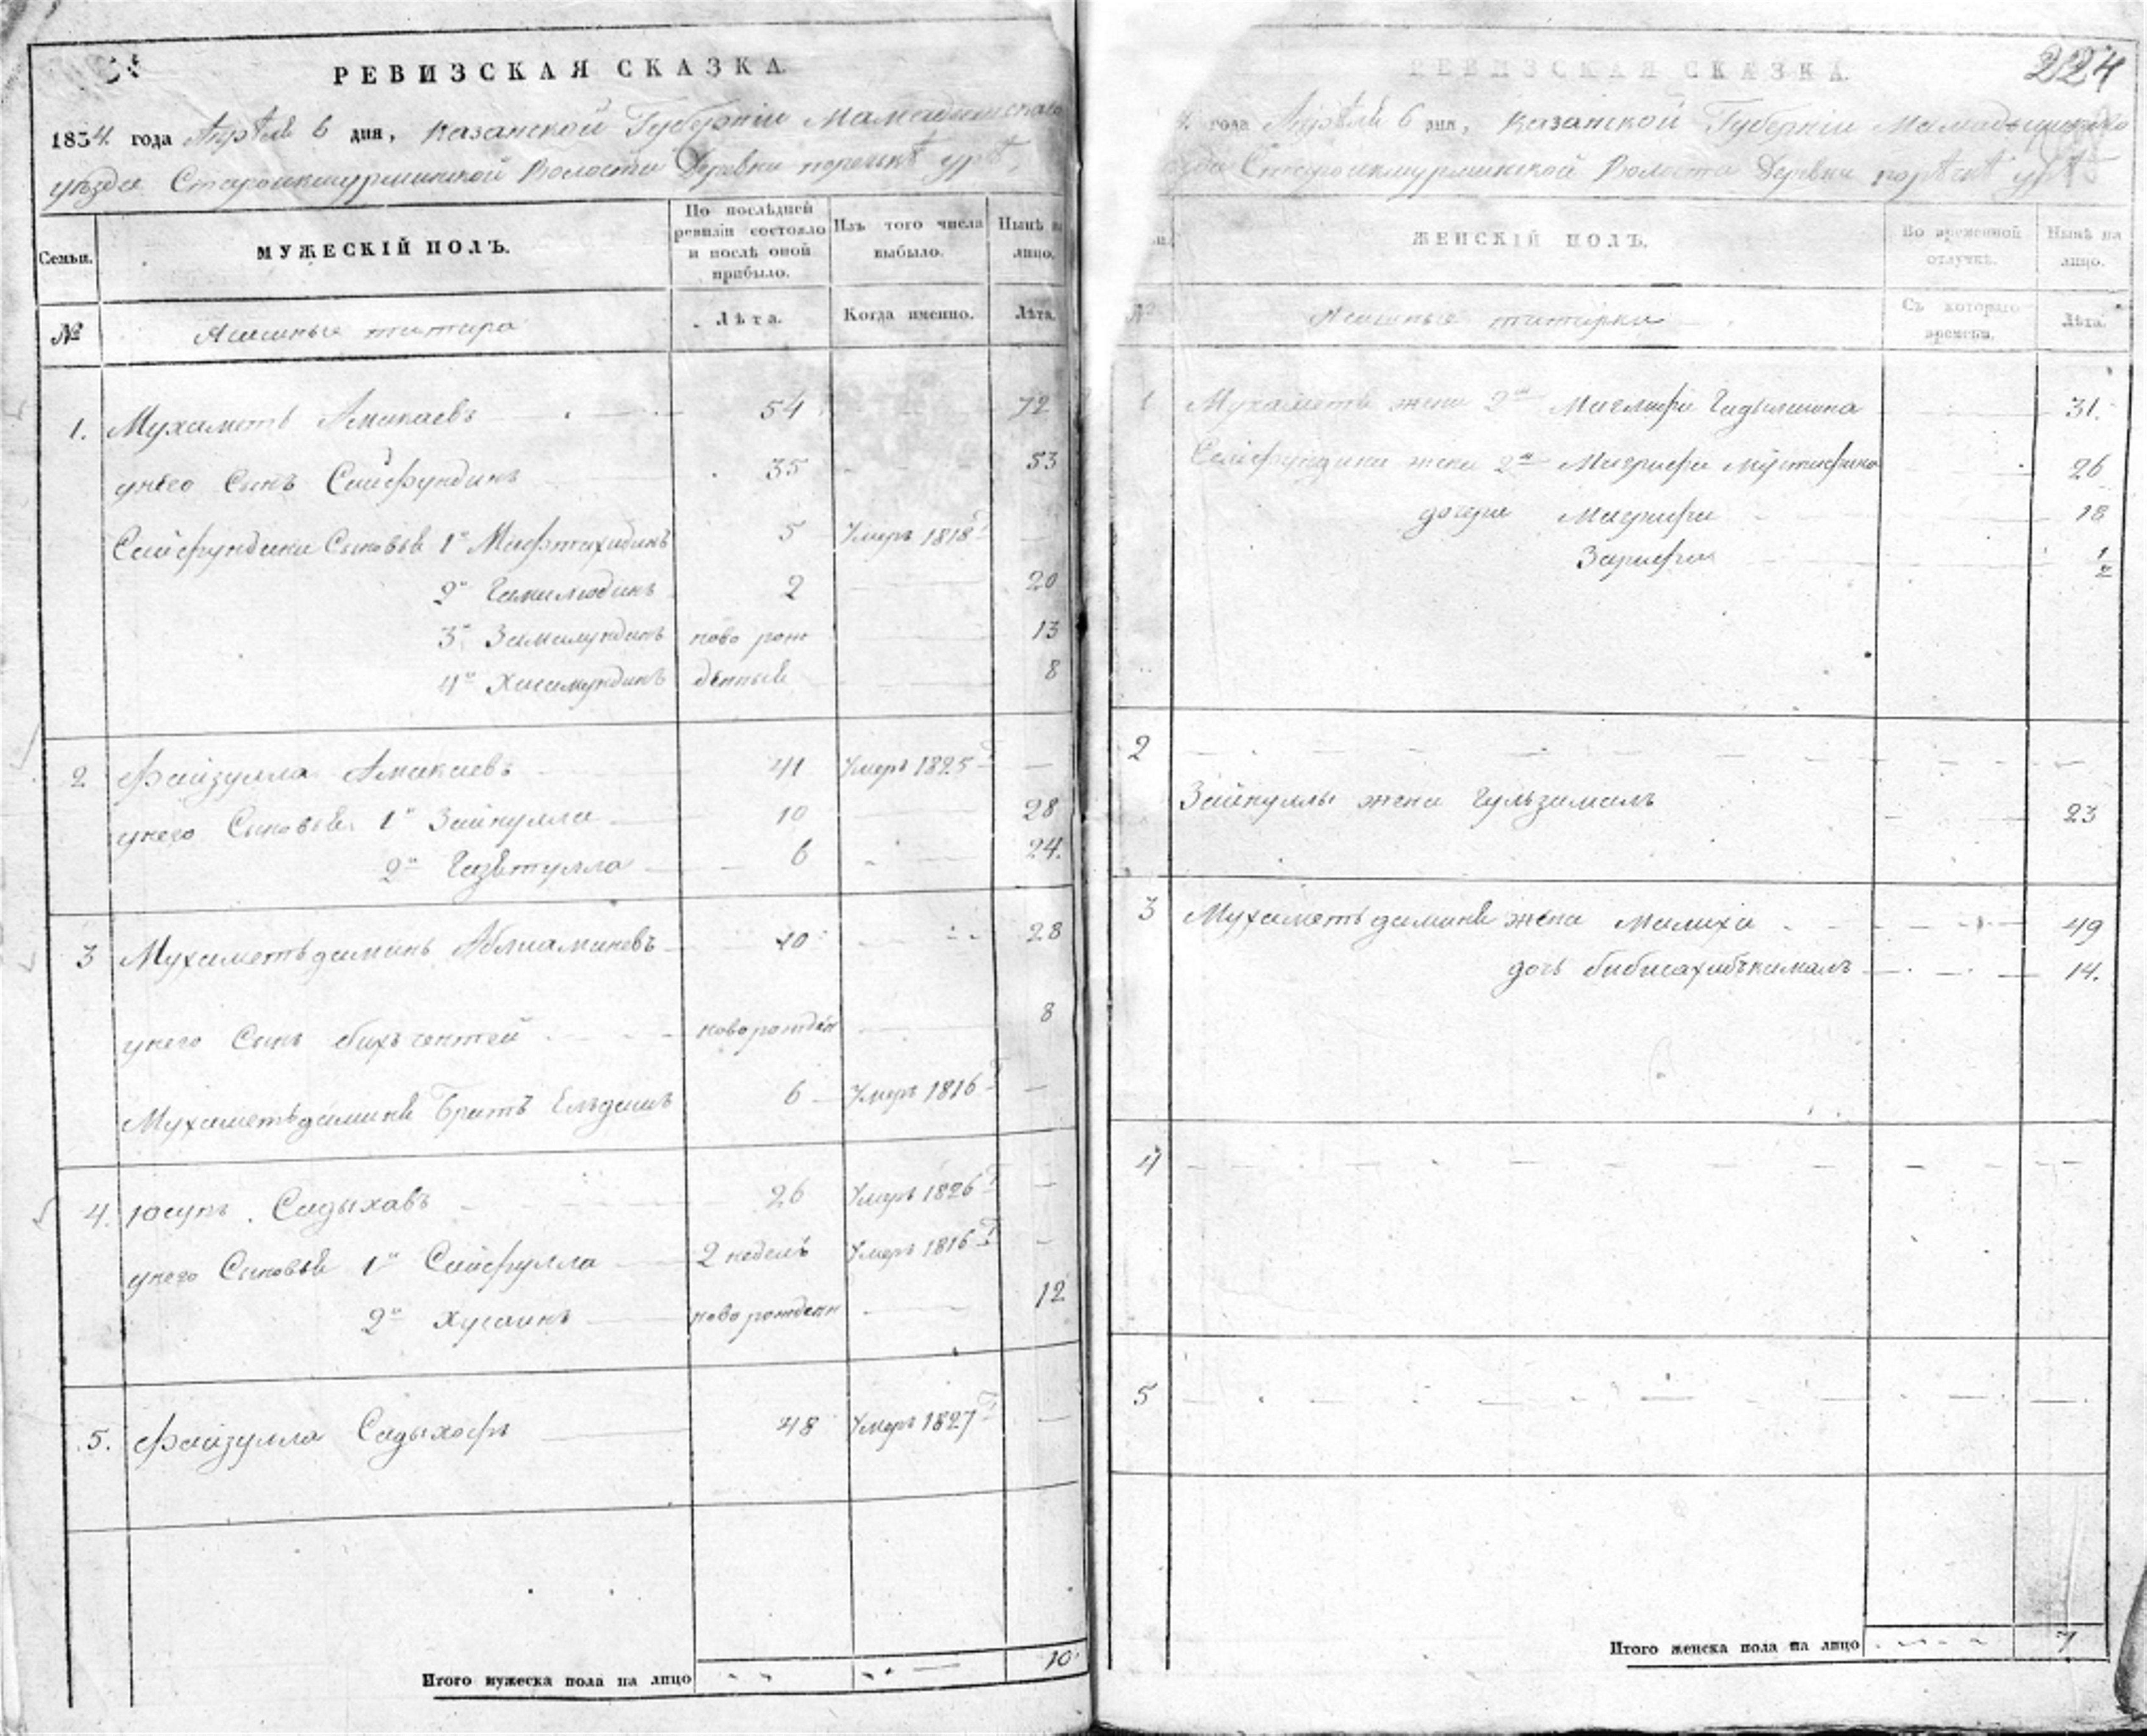 РЕВИЗСКАЯ СКАЗКА
1834 года Апреля 6 дня, Казанской Губернiи Мамадышскаго
уезда Староикшурминской Волости Деревни поречкѣ урѣ
Семьи.
МУЖЕСКIЙ ПОЛЪ.
По послѣдней ревизiи состояло и послѣ оной прибыло.
Изъ того числа выбыло.
Нынѣ на лицо.
№
Ясашные татара
Лѣта.
Когда именно.
Лѣта.
1. Мухаметь Амикаевъ 54 72
унего Сынъ Сайфундинъ 35 53
Сайфундина Сыновья 1й Мифтахидинъ 5 Умеръ 1818
2й Гамилюдинъ 2 20
3й Замалундинъ ново рож 13
4й Хисамундинъ денные 8
2 Файзулла Амикаевъ 41 Умеръ 1825
унего Сыновья 1й Зайнулла 10 28
2й Гизѣтулла 6 24.
3 Мухаметьдаминъ Аблиаминевъ 10 28
унего Сынъ новорожден 8
Мухаметьдамина Братъ Ельдашъ 6 Умеръ 1816
4. Юсупъ Садыхавъ 26 Умеръ 1826
унего Сыновья 1й Сайфулла 2 недель Умеръ 1816
2й Хусаинъ новорожденн 12
5. Файзулла Садыхофъ 48 Умеръ 1827
Итого мужеска пола на лицо 10
224
РЕВИЗСКАЯ СКАЗКА.
4 года Апреля 6 дня, Казанской Губернiи Мамадышскаго
уезда Староикшурминской Волости Деревни порѣчкѣ урѣ
ЖЕНСКIЙ ПОЛЪ.
Во временной отлучкѣ.
Нынѣ на лицо.
№
Ясашные татарки
Съ котораго времени.
Лѣта.
1 Мухаметя жена 2я Гадильшина 31.
Сайфундина жена 2я Магрифа Мустафина 26
дочери Магрифа 18
Зарифа 1/2
2
Зайнуллы жена Гульзамалъ 23
3 Мухаметьдамина жена Малиха 49
дочь бибисахибъкамалъ 14.
4
5
Итого женска пола на лицо 7